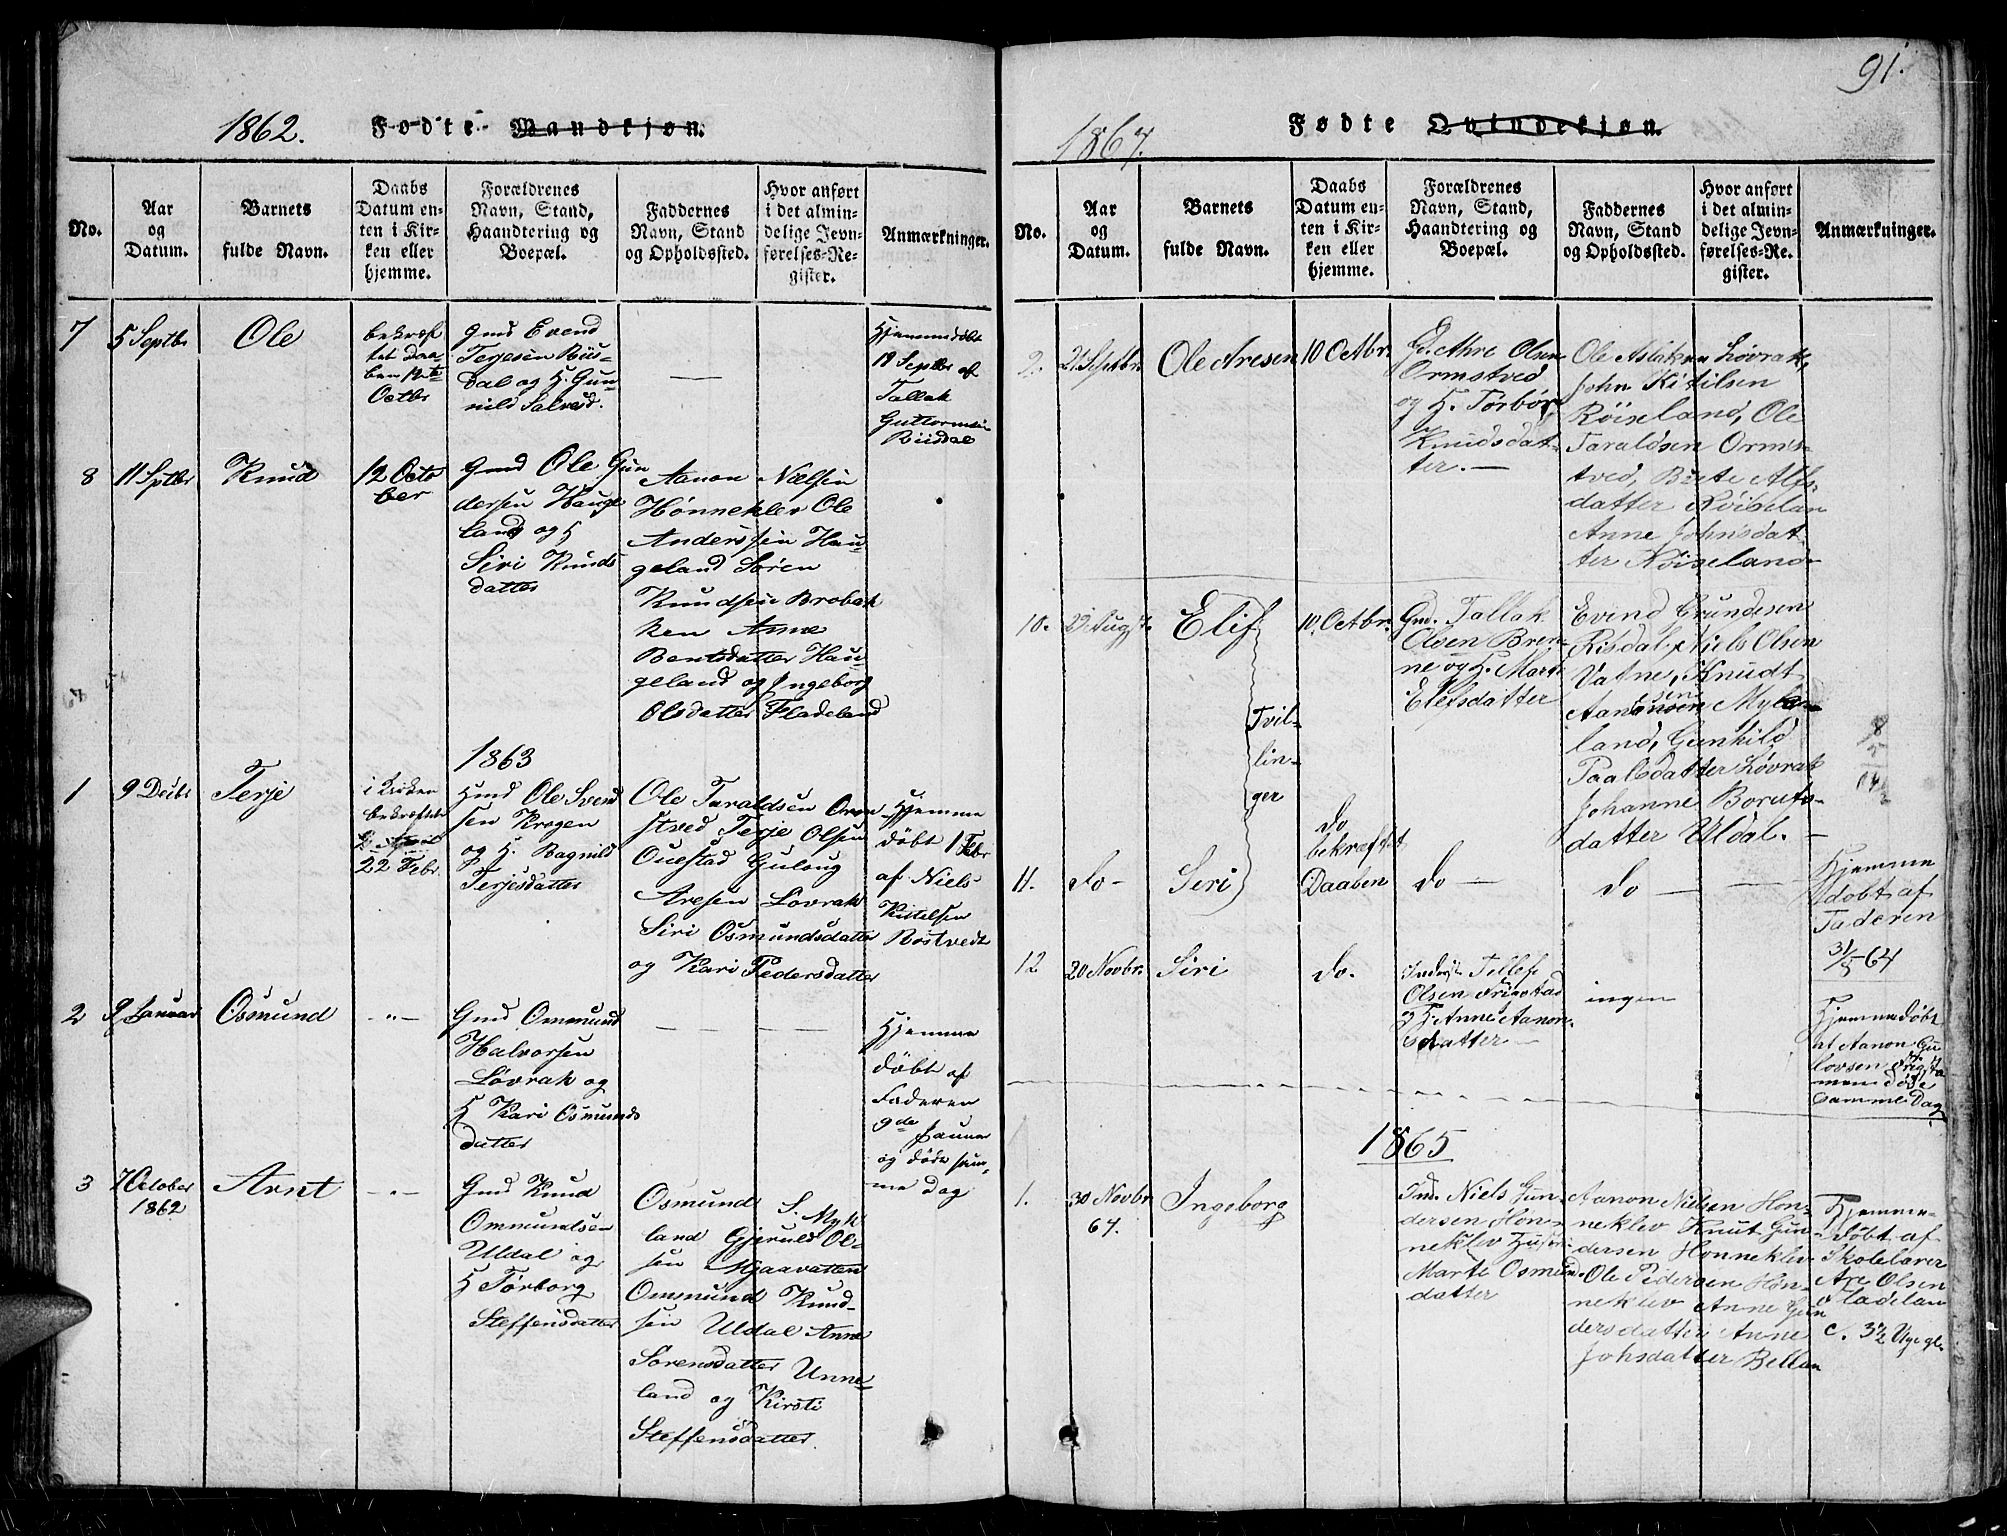 1862. Fødte Mandkjøn.
No.
Aar
og
Datum.
Barnets
fulde Navn.
Daabs
Datum en-
ten i Kir-
ken eller
hjemme.
Forældrenes
Navn, Stand,
Haandtering og
Boepæl.
Faddernes
Navn, Stand
og Opholdssted.
Hvor anført
i det almin-
delige Jevn-
førelses-Re-
gister.
Anmærkninger.
7
5 Septbr
Ole
bekræf
tet daa-
ben 12te
Octbr
Gmd Evend
Terjesen Riis-
dal og H. Gun
nild Salvesd.
Hjemmedøbt
18 Septbr af
Tallak
Guttormsen
Riisdal
8
11 Sptbr
Knud
12 Octo
ber
Gmd Ole Gun
dersen Hauge
land og H
Siri Knuds
datter
Aanon Nælsen
Hønneklev Ole
Anderssen Hau-
geland Søren
Knudsen Brobak
ken Anne
Bentsdatter Hau-
geland og Ingeborg
Olsdatter Fladeland
1863
1
9 Decbr
Terje
i Kirken
bekræftet
22 Febr.
Hmd Ole Svend
sen Krogen
og H. Ragnild
Terjesdatter
Ole Taraldsen Orm
stved Terje Olsen
Ouestad Guloug
Aresen Lovrak
Siri Osmundsdatter
og Kari Pedersdatter
Hjemme
døbt 1 Febr
af Niels
Kittelsen
Rostvedt
2
9 Januar
Osmund
- " -
Gmd Ommund
Halvorsen
Lovrak og
H Kari Osmunds
datter
Hjemme
døbt af
Faderen
9de Januar
og døde sam-
me dag
3
7 October
1862
Arnt
- " -
Gmd Knud
Ommundsen
Uldal og
H Torborg
Steffensdatter
Osmund S. Myk
land Gjeruld Ol-
sen Mjaavatten
Ommund Knud-
sen Uldal Anne
Sorensdatter Unne-
land og Kirsti
Steffensdatter.
91.
1864. Fødte Qvindekjøn.
No.
Aar
og
Datum.
Barnets
fulde Navn.
Daabs
Datum en-
ten i Kir-
ken eller
hjemme.
Forældrenes
Navn, Stand,
Haandtering og
Boepæl.
Faddernes
Navn, Stand
og Opholdssted.
Hvor anført
i det almin-
delige Jevn-
førelses-Re-
gister.
Anmærkninger.
9.
21 Septbr.
Ole Aresen
10 Octbr.
Gd. Ahre Olsen
Ormstved
og H. Torbor
Knudsdat-
ter. —
Ole Aslaksen Lovrak,
John Kitilsen
Røiseland, Ole
Taraldsen Orms-
tved, Brete Alfs-
datter Røiselan
Anne Johnsdat-
ter Røiseland
10.
29 Augst.
Elif
Tvil-
lin-
ger
10. Octbr.
Gmd. Tallak
Olsen Bren-
ne og H. Marte
Elefsdatter
Evind Grundesen
Risdal, Niels Olsen
Vatne, Knudt
Aanonsen Myk
land, Gunhild
Paalsdatter Lovrak
Johanne Boruts-
datter Uldal. —
11.
do -
Seri
do
bekræftet
Daaben
do —
do —
Hjemme
døbt af
Faderen
31/8 64
12
20 Novbr.
Siri
do.
Tellef
Olsen Frigstad
H. Anne Aanon-
sdatter —
ingen
Hjemmedøbt
at Aanon Gu
lovsen Frigsta
men døde
samme Dag
1865
1.
30 Novbr
64.
Ingeborg
Ind. Niels Gun-
dersen Hon-
neklev Hustr
Marte Osmund
datter
Aanon Nielsen Hon-
neklev Knut Gun-
dersen Honneklev
Ole Pedersen Hon-
neklev Anne Gun
dersdatter Anne
Johsdatter Bellan
Hjemme-
døbt af
Skolelærer
Are Olsen
Fladelan
c. 3 1/2 Uge gl.